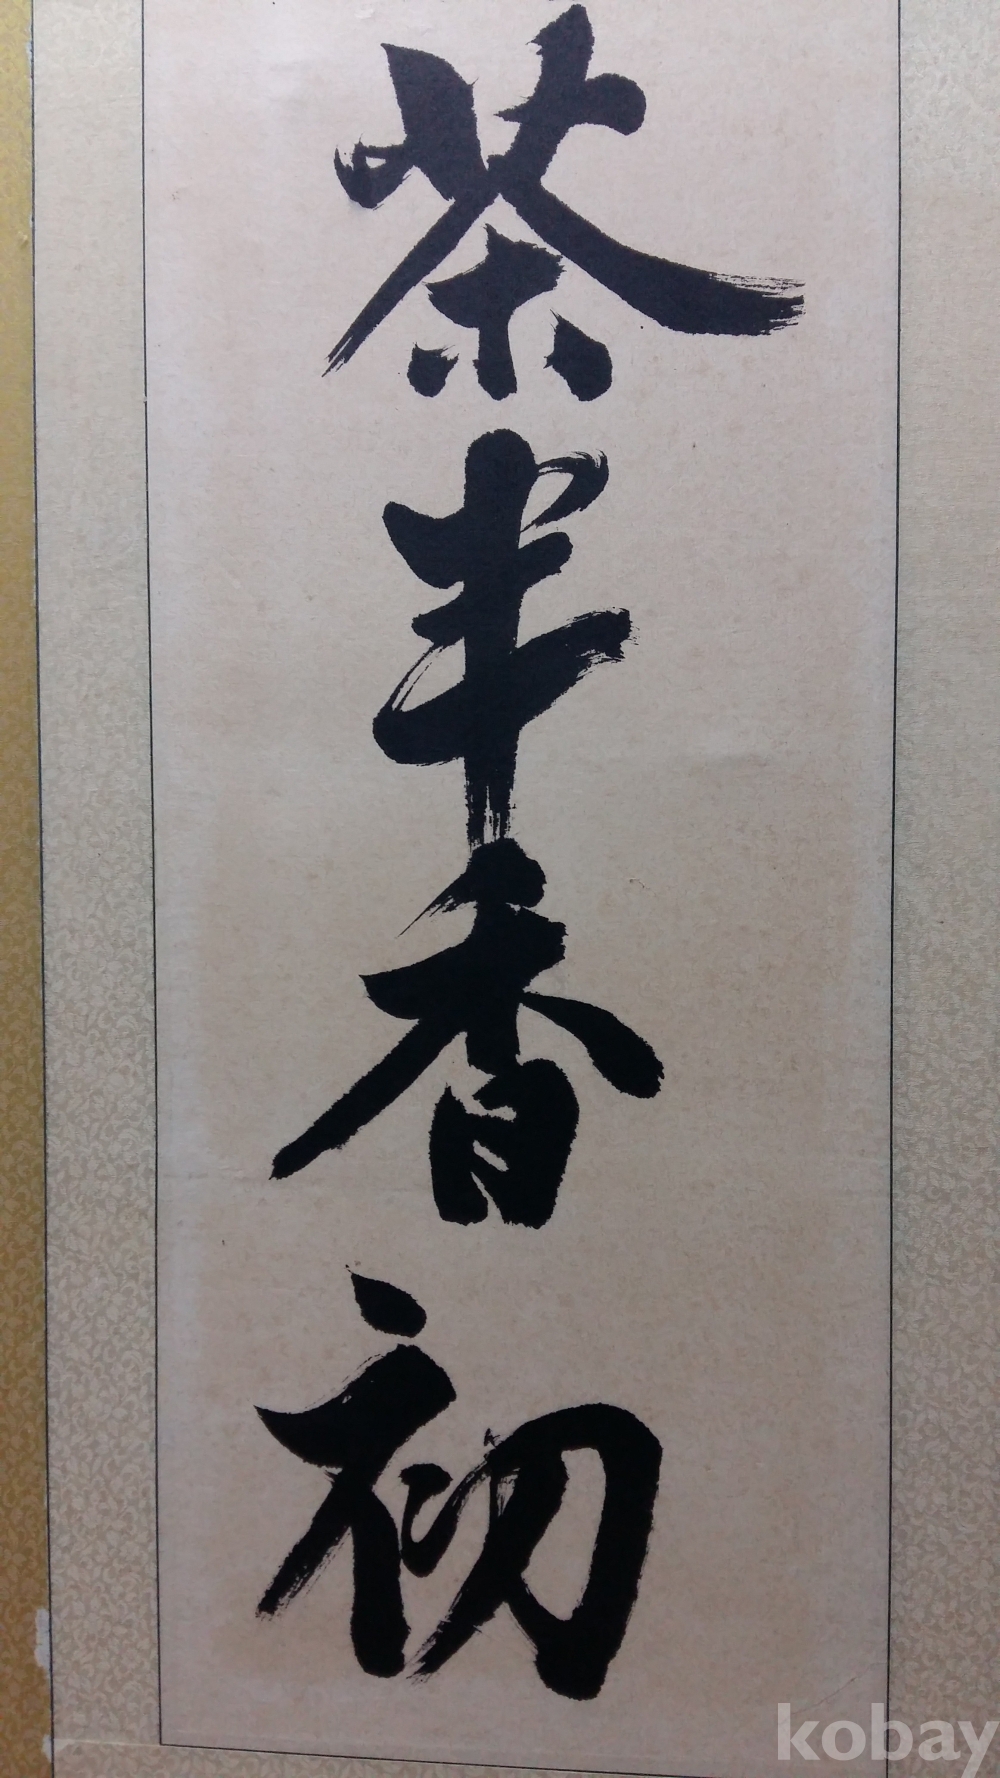 茶半香初
kobay